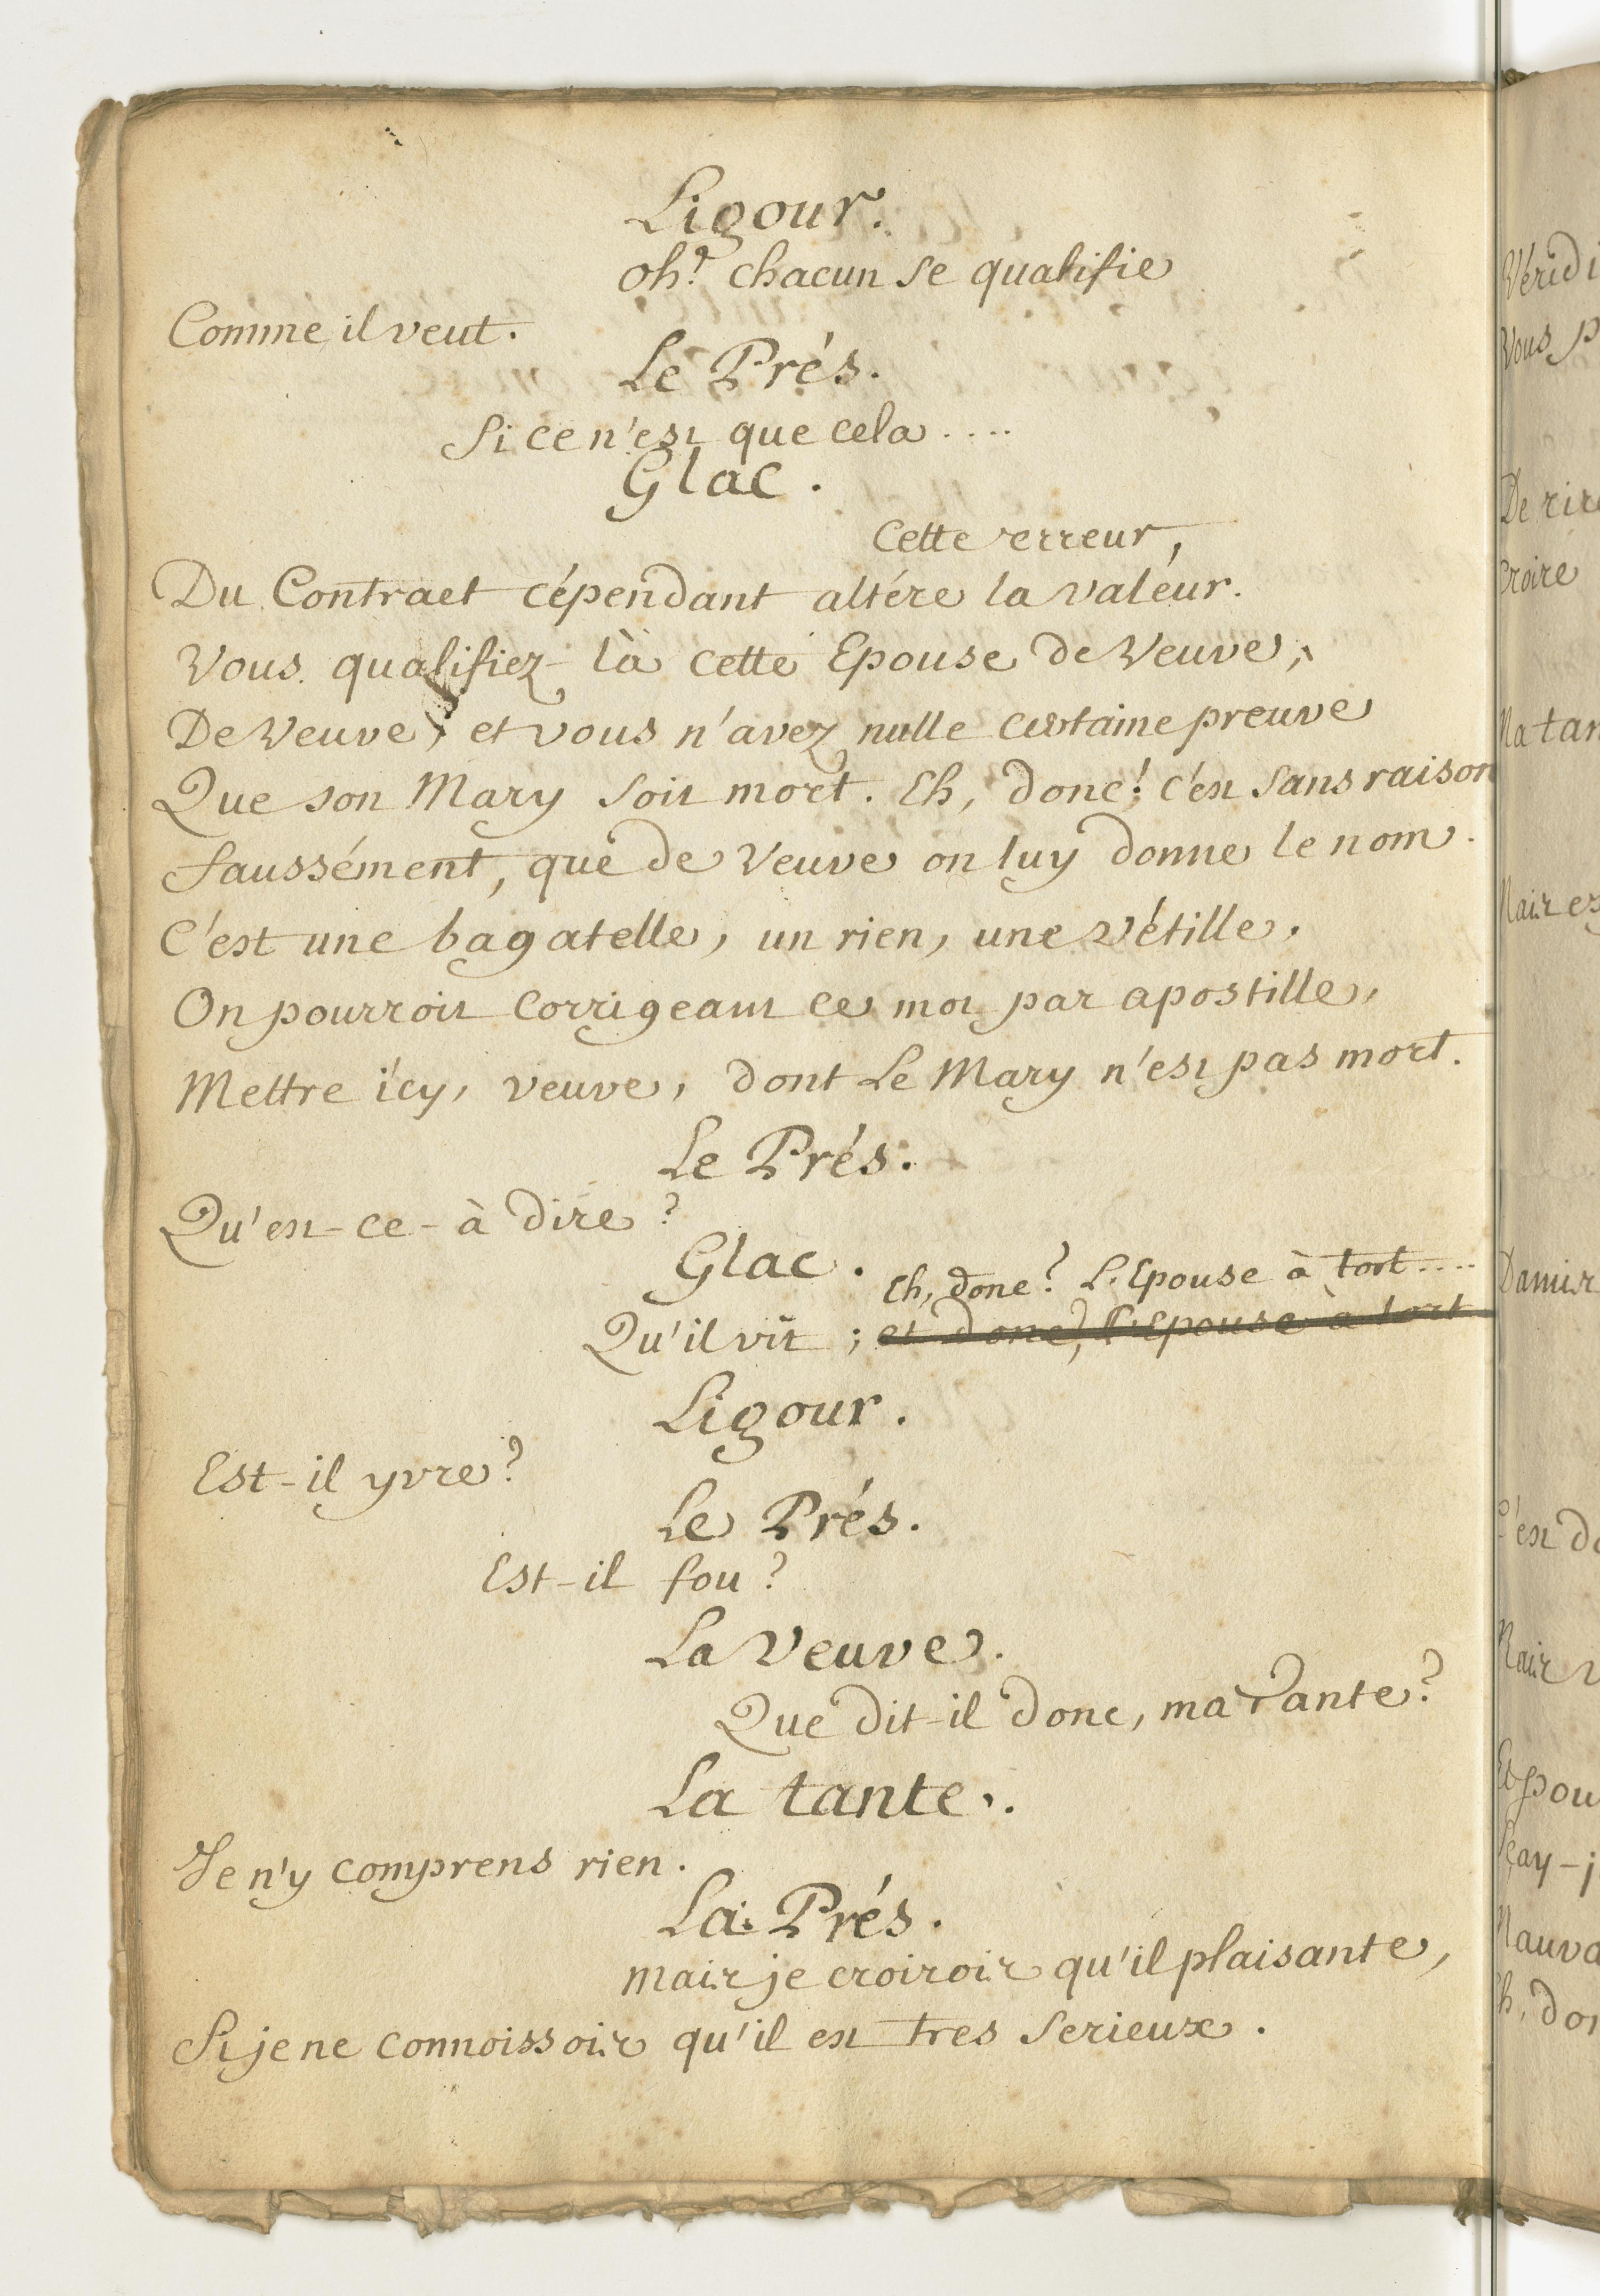 Ligour.
oh! chacun se qualifie
Comme il veut.
Le Prés.
Si ce n'est que cela....
Glac.
Cette erreur,
Du Contract cépendant altére la valéur.
Vous qualifiez là cette Epouse de Veuve,
De Veuve, et vous n'avez nulle certaine preuve
Que son Mary soit mort. Eh, donc! c'est sans raison
faussément, que de Veuve on luy donne le nom.
C'est une bagatelle, un rien, une vétille.
On pourroit corrigeant ce mot par apostille,
Mettre icy, veuve, dont Le Mary n'est pas mort.
Le Prés.
Qu'est-ce-à dire?
Glac.
Eh, donc? L'Epouse à tort....
Qu'il vit; et donc, l'Epouse à tort
Ligour.
Est-il yvre?
Le Prés.
Est-il fou?
La Veuve.
Que dit-il donc, ma Tante?
La tante.
Je n'y comprens rien.
La Prés.
mais je croirois qu'il plaisante,
Si je ne connoissois qu'il est tres serieux.
Véridi
Vous p
De rire
Croire
Ma tan
Mais es
Damis
C'est do
Mais v
Et pou
Sçay-j
Mauva
Eh, don